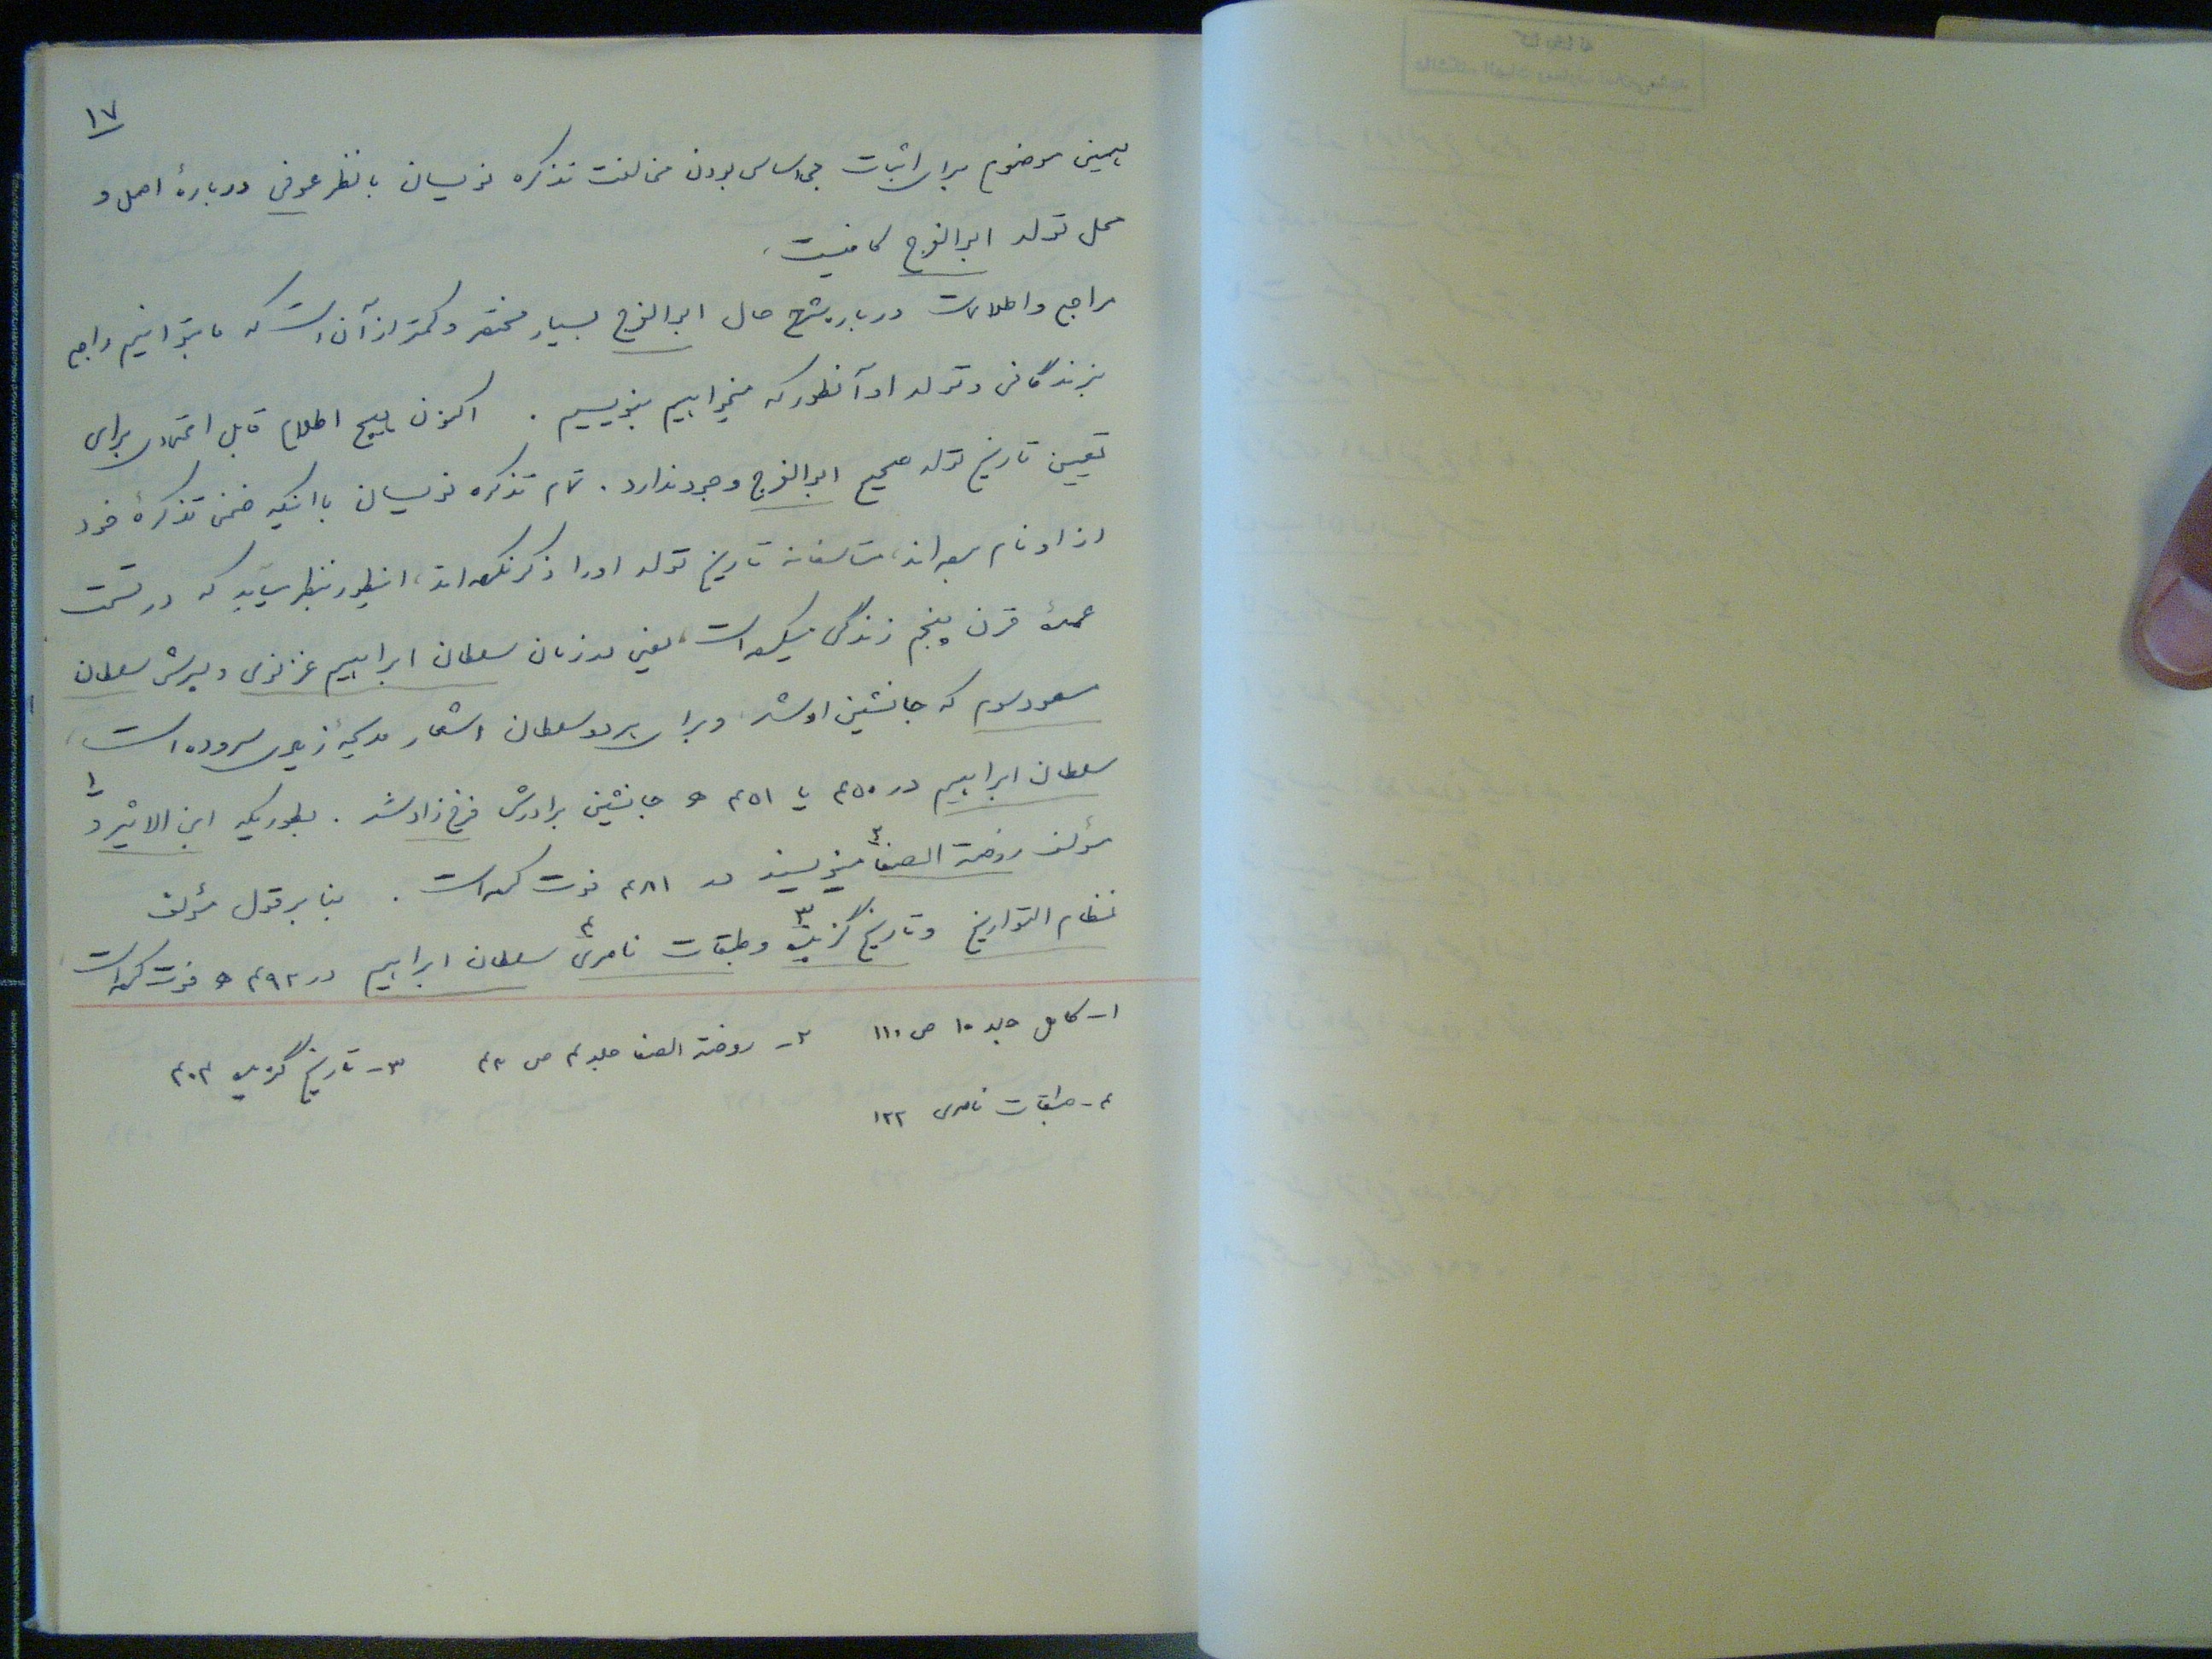 ۱۷
همین موضوع برای اثبات بی اساس بودن مخالفت تذکره نویسان با نظر عوفی دربارهٔ اصل و
محل تولد ابوالفرج کافیست.
مراجع و اطلاعات درباره شرح حال ابوالفرج بسیار مختصر و کمتر از آن است که ما بتوانیم راجع
بزندگانی و تولد او آنطور که میخواهیم بنویسیم. اکنون هیچ اطلاع قابل اعتمادی برای
تعیین تاریخ تولد صحیح ابوالفرج وجود ندارد. تمام تذکره نویسان با اینکه ضمن تذکرهٔ خود
از او نام برده اند، متأسفانه تاریخ تولد او را ذکر نکرده اند، اینطور بنظر میآید که در قسمت
عمدهٔ قرن پنجم زندگی میکرده است، یعنی در زمان سلطان ابراهیم غزنوی و پسرش سلطان
مسعود سوم که جانشین او شد، و برای هر دو سلطان اشعار مدیحهٔ زیادی سروده است،
سلطان ابراهیم در ۴۵۰ یا ۴۵۱ ه جانشین برادرش فرخ زاد شد. بطوریکه ابن الاثیر۱ و
مؤلف روضة الصفا۲ مینویسند در ۴۸۱ فوت کرده است. بنا بر قول مؤلف
نظام التواریخ و تاریخ گزیده۳ و طبقات ناصری۴ سلطان ابراهیم در ۴۹۲ ه فوت کرده است
۱- کامل جلد ۱۰ ص ۱۱۰ ۲- روضة الصفا جلد ۴ ص ۴۲ ۳- تاریخ گزیده ۴۰۳
۴- طبقات ناصری ۱۲۲